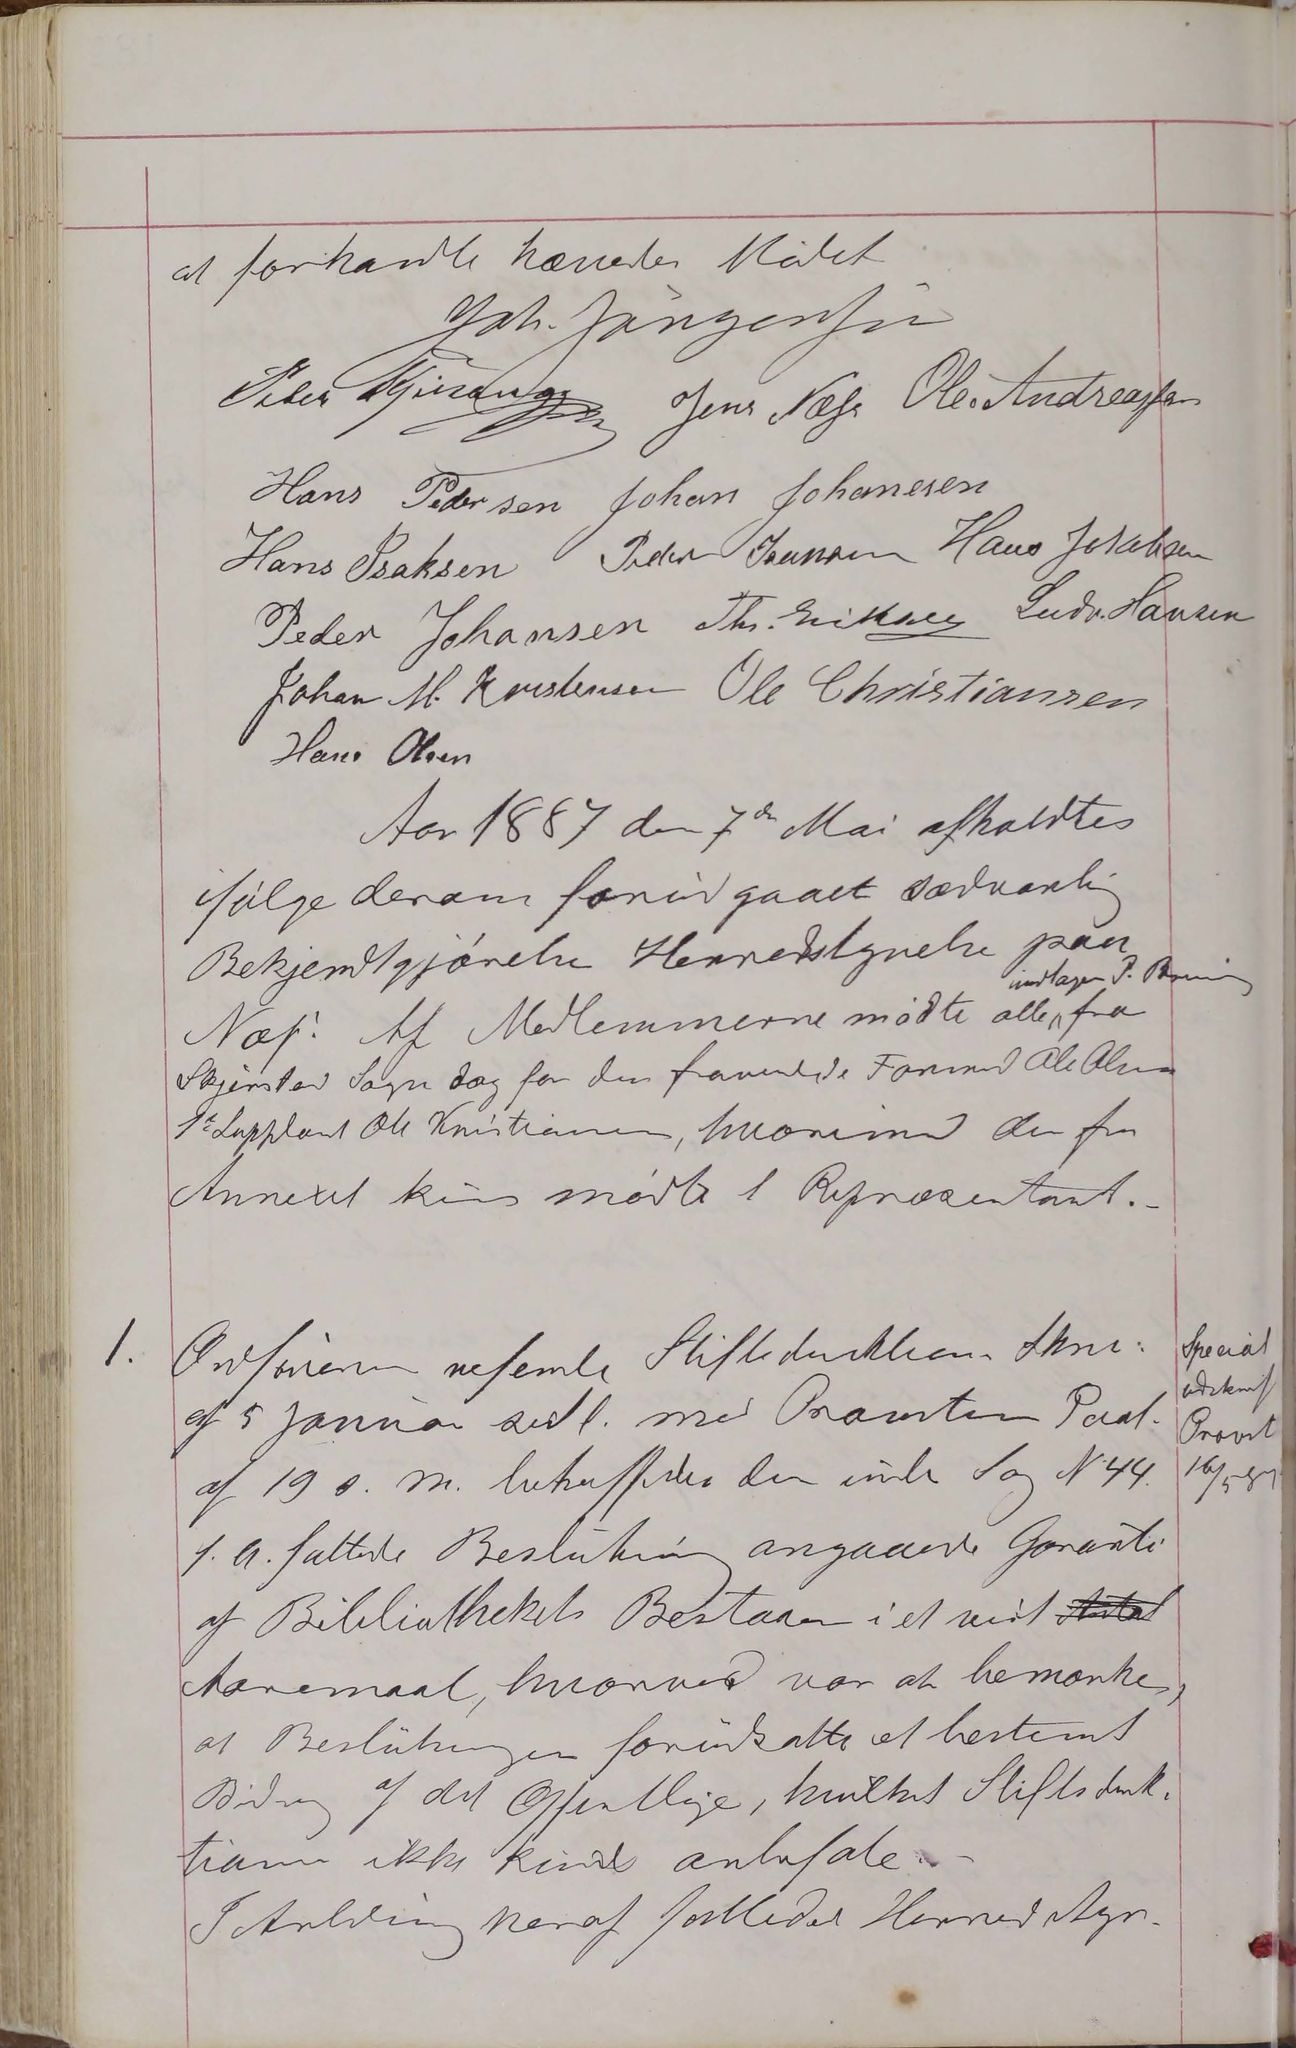 at forhandle hævedes Mödet
Joh. Jörgensen
Peder
Jens Næss Ole Andreassen
Hans Pedersen Johan Johanesen
Hans Isaksen Peder Hans Jakobsen
Peder Johansen Th. Eriksen Ludv. Hansen
Johan M. Kristensen Ole Christiansen
Hans Olsen
Aar 1887 den 7de Mai afholdtes
ifølge derom forudgaaet sædvanlig
Bekjendtgjørelse Herredstyrelse paa
Næs. Af Medlemmerne mødte alle, fra
undtagen P.
Skjerstad Sogn dog for den fraværende Formand Ole Olsen
1ste Supplant Ole Kristiansen, hvorimod der fra
Annexet kuns mødte 1 Repræsentant.-
1. Ordføreren refererte Stiftsdirektionens Skriv:
af 5 Januar sidstl. med Provstens Paat.
af 19 s. m. betræffende den under Sag N 44
f. A. fattede Beslutning angaaende Garanti
af Bibliothekets Bestaaen i et vist Antal
Aaremaal, hvorved var at bemærke,
at Beslutningen forudsatte et bestemt
Bidrag af det Offentlige, hvilket Stiftsdirek-
tionen ikke kunde anbefale.-
I Anledning heraf fastledes Herredstyr-
Special
udskrift
Provst
16/5 87